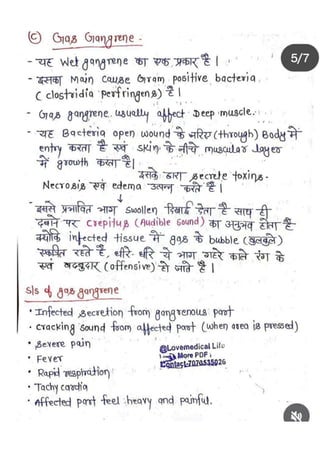 (c) Gas Gangrene -
5/7
- यह Wet gangrene का एक प्रकार है |
- इसका Main Cause Gram positive bacteria
( clostridia perfringens) है |
- Gas gangrene usually affect Deep muscle.
- यह Bacteria open wound के जरिए (through) Body में
entry करता है एवं skin के नीचे muscular layer
में growth करता है |
इसके द्वारा secrete toxins.
Necrosis एवं edema उत्पन्न करते है |
↓
- इससे प्रभावित भाग Swollen दिखाई देता है साथ ही
दबाने पर crepitus (Audible sound) का अनुभव होता है
क्योंकि infected tissue में gas के bubble (बुलबुले)
एकत्रित रहते है, धीरे-धीरे ये भाग गहरे काले रंग के
एवं बदबूदार (offensive) हो जाते है |
S/s of gas gangrene
• Infected secretion from gangrenous part
• cracking sound from affected part (when area is pressed)
• severe pain
• Fever
• Rapid respiration
• Tachy cardia
• Affected part feel heavy and painful.
@Lovemedical Life
More PDF
Contact-7070535026